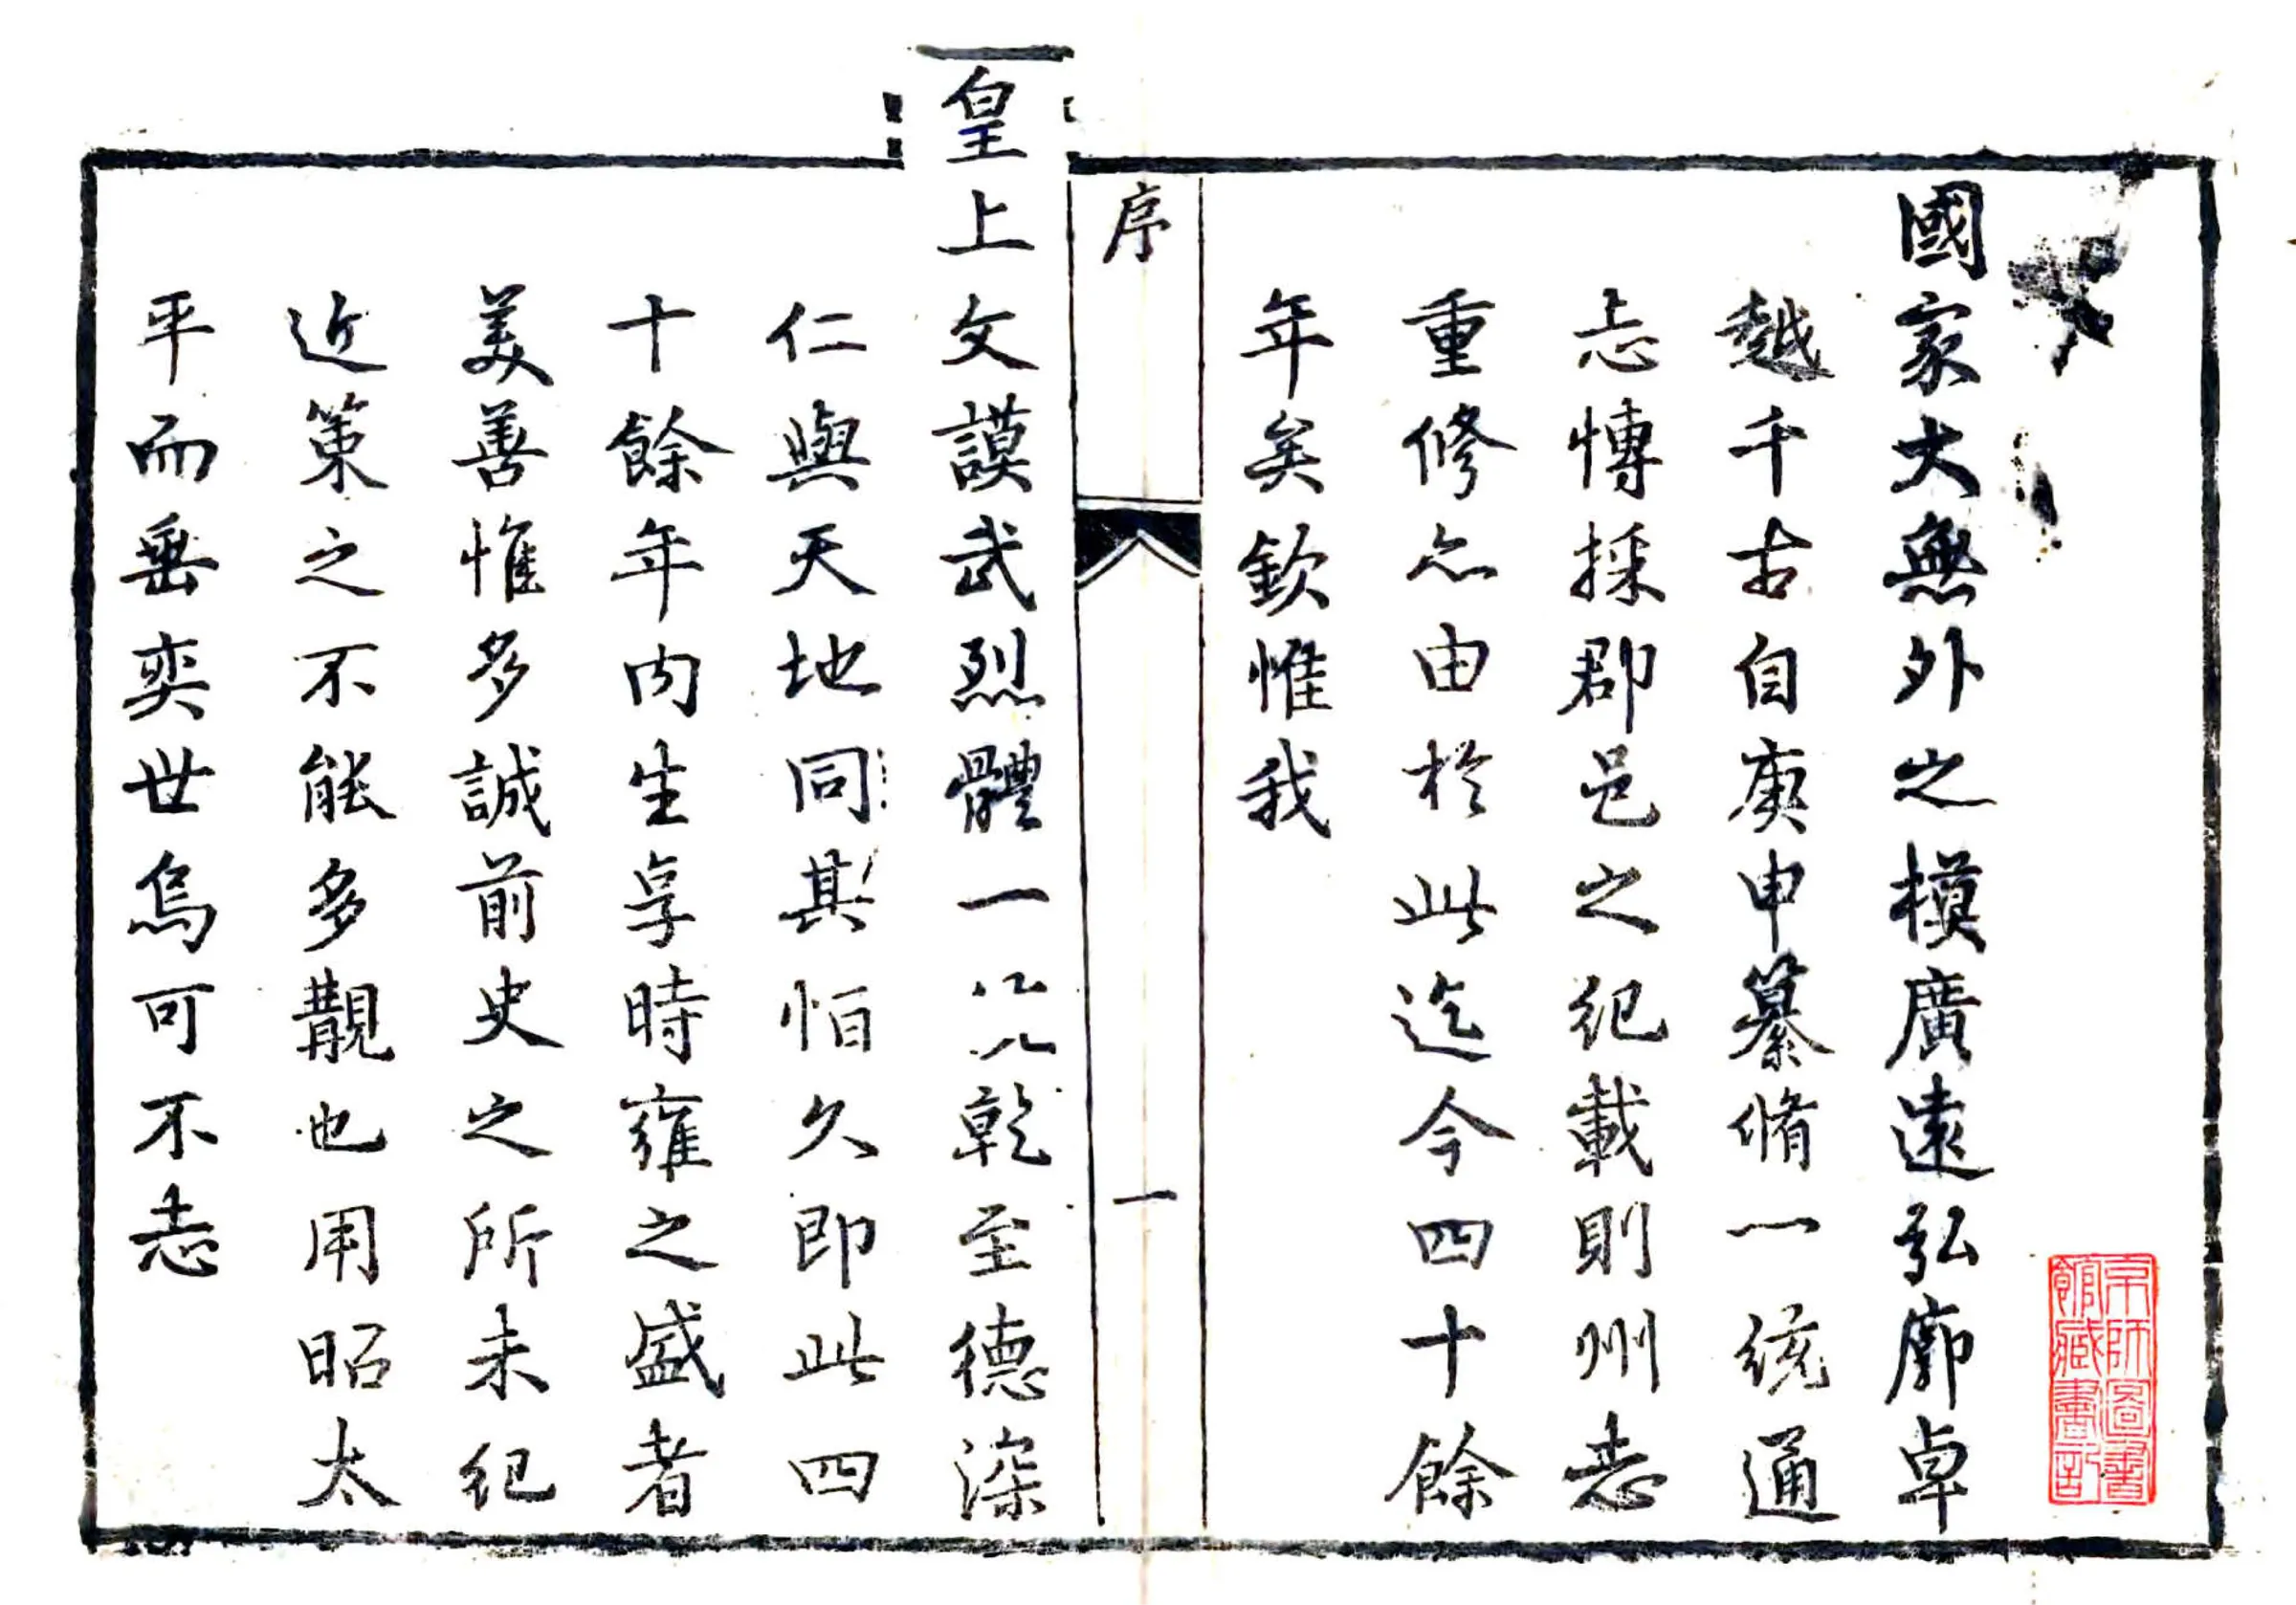 國家大無外之模廣遠弘廓卓
越千古自庚申纂脩一統通
志愽採郡邑之纪載則州志
重修亦由於此迄今四十餘
年矣欽惟我
序
一
皇上文謨武烈體一乾至德深
仁與天地同其恒久即此四
十餘年内生享時雍之盛者
美善惟多誠前史之所未纪
近策之不能多覯也用昭太
平而垂奕世烏可不志
京師圖書
館藏書記